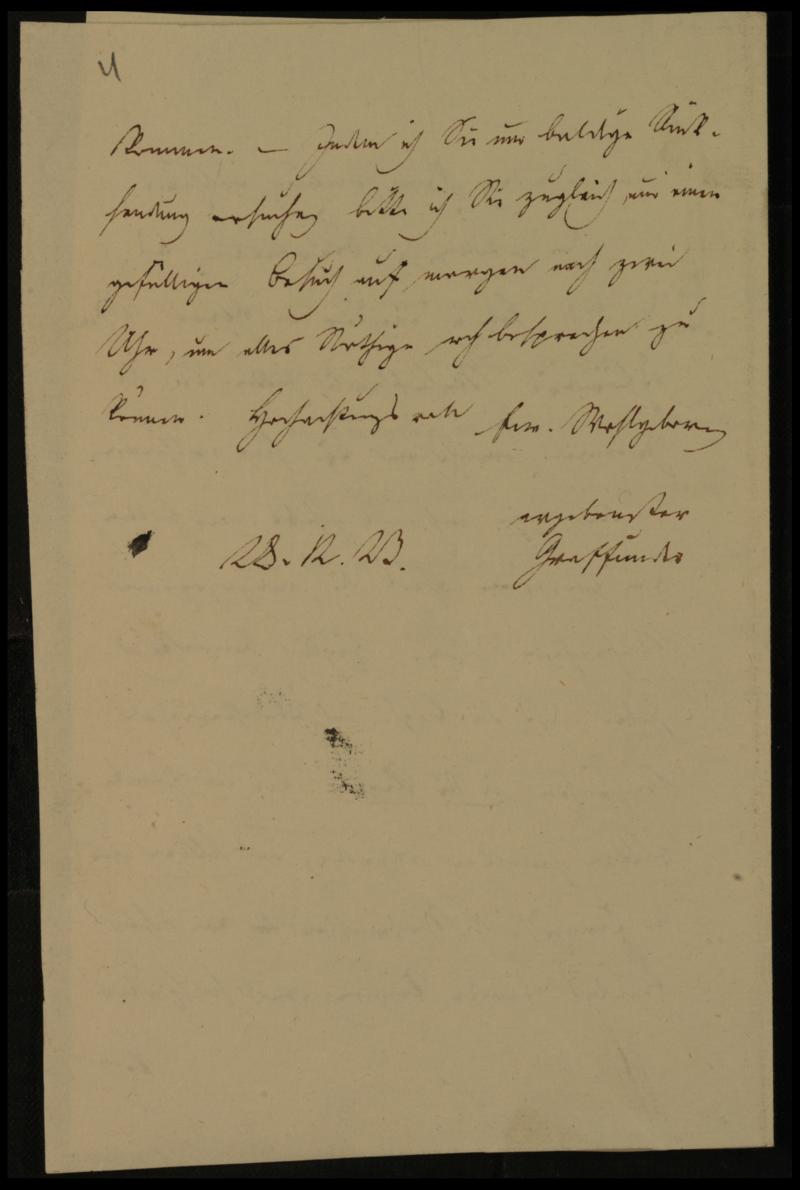 kommen. – Indem ich Sie um baldige Rück-
sendung ersuche, bitte ich Sie zugleich um einen
gefälligen Besuch auf morgen nach zwei
Uhr, um alles Nöthige noch besprechen zu
können. Hochachtungsvoll Ew. Wohlgeboren
ergebenster
28. 12. 23. Graffunder